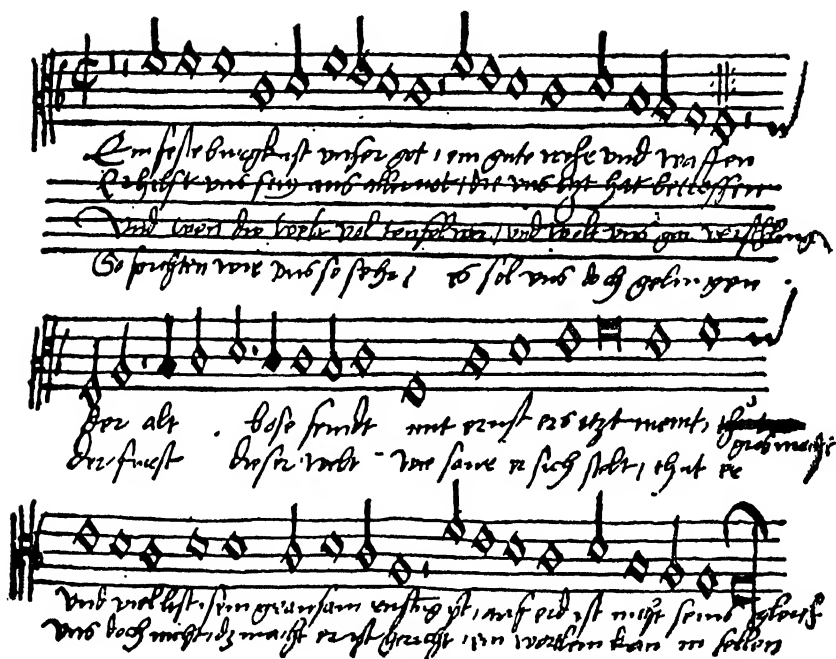 Ein feste burgk ist unser got, ein gute wehr und waffen
Er hilft uns frey aus aller not, die uns itzt hat betroffen
Und wen die welt vol teufel wer, und wolt uns gar verschling
So furchten wir uns so sehr, es sol uns doch gelingen
Der alt bose feindt mit ernst ers itzt meint,
gros macht
der furst dieser welt wie saur er sich stelt, thut er
und viel list, sein grausam rustug yst, auf erd ist nicht seins gleich
uns doch nicht, dz macht er ist gericht, ein wortlein kan in fellen